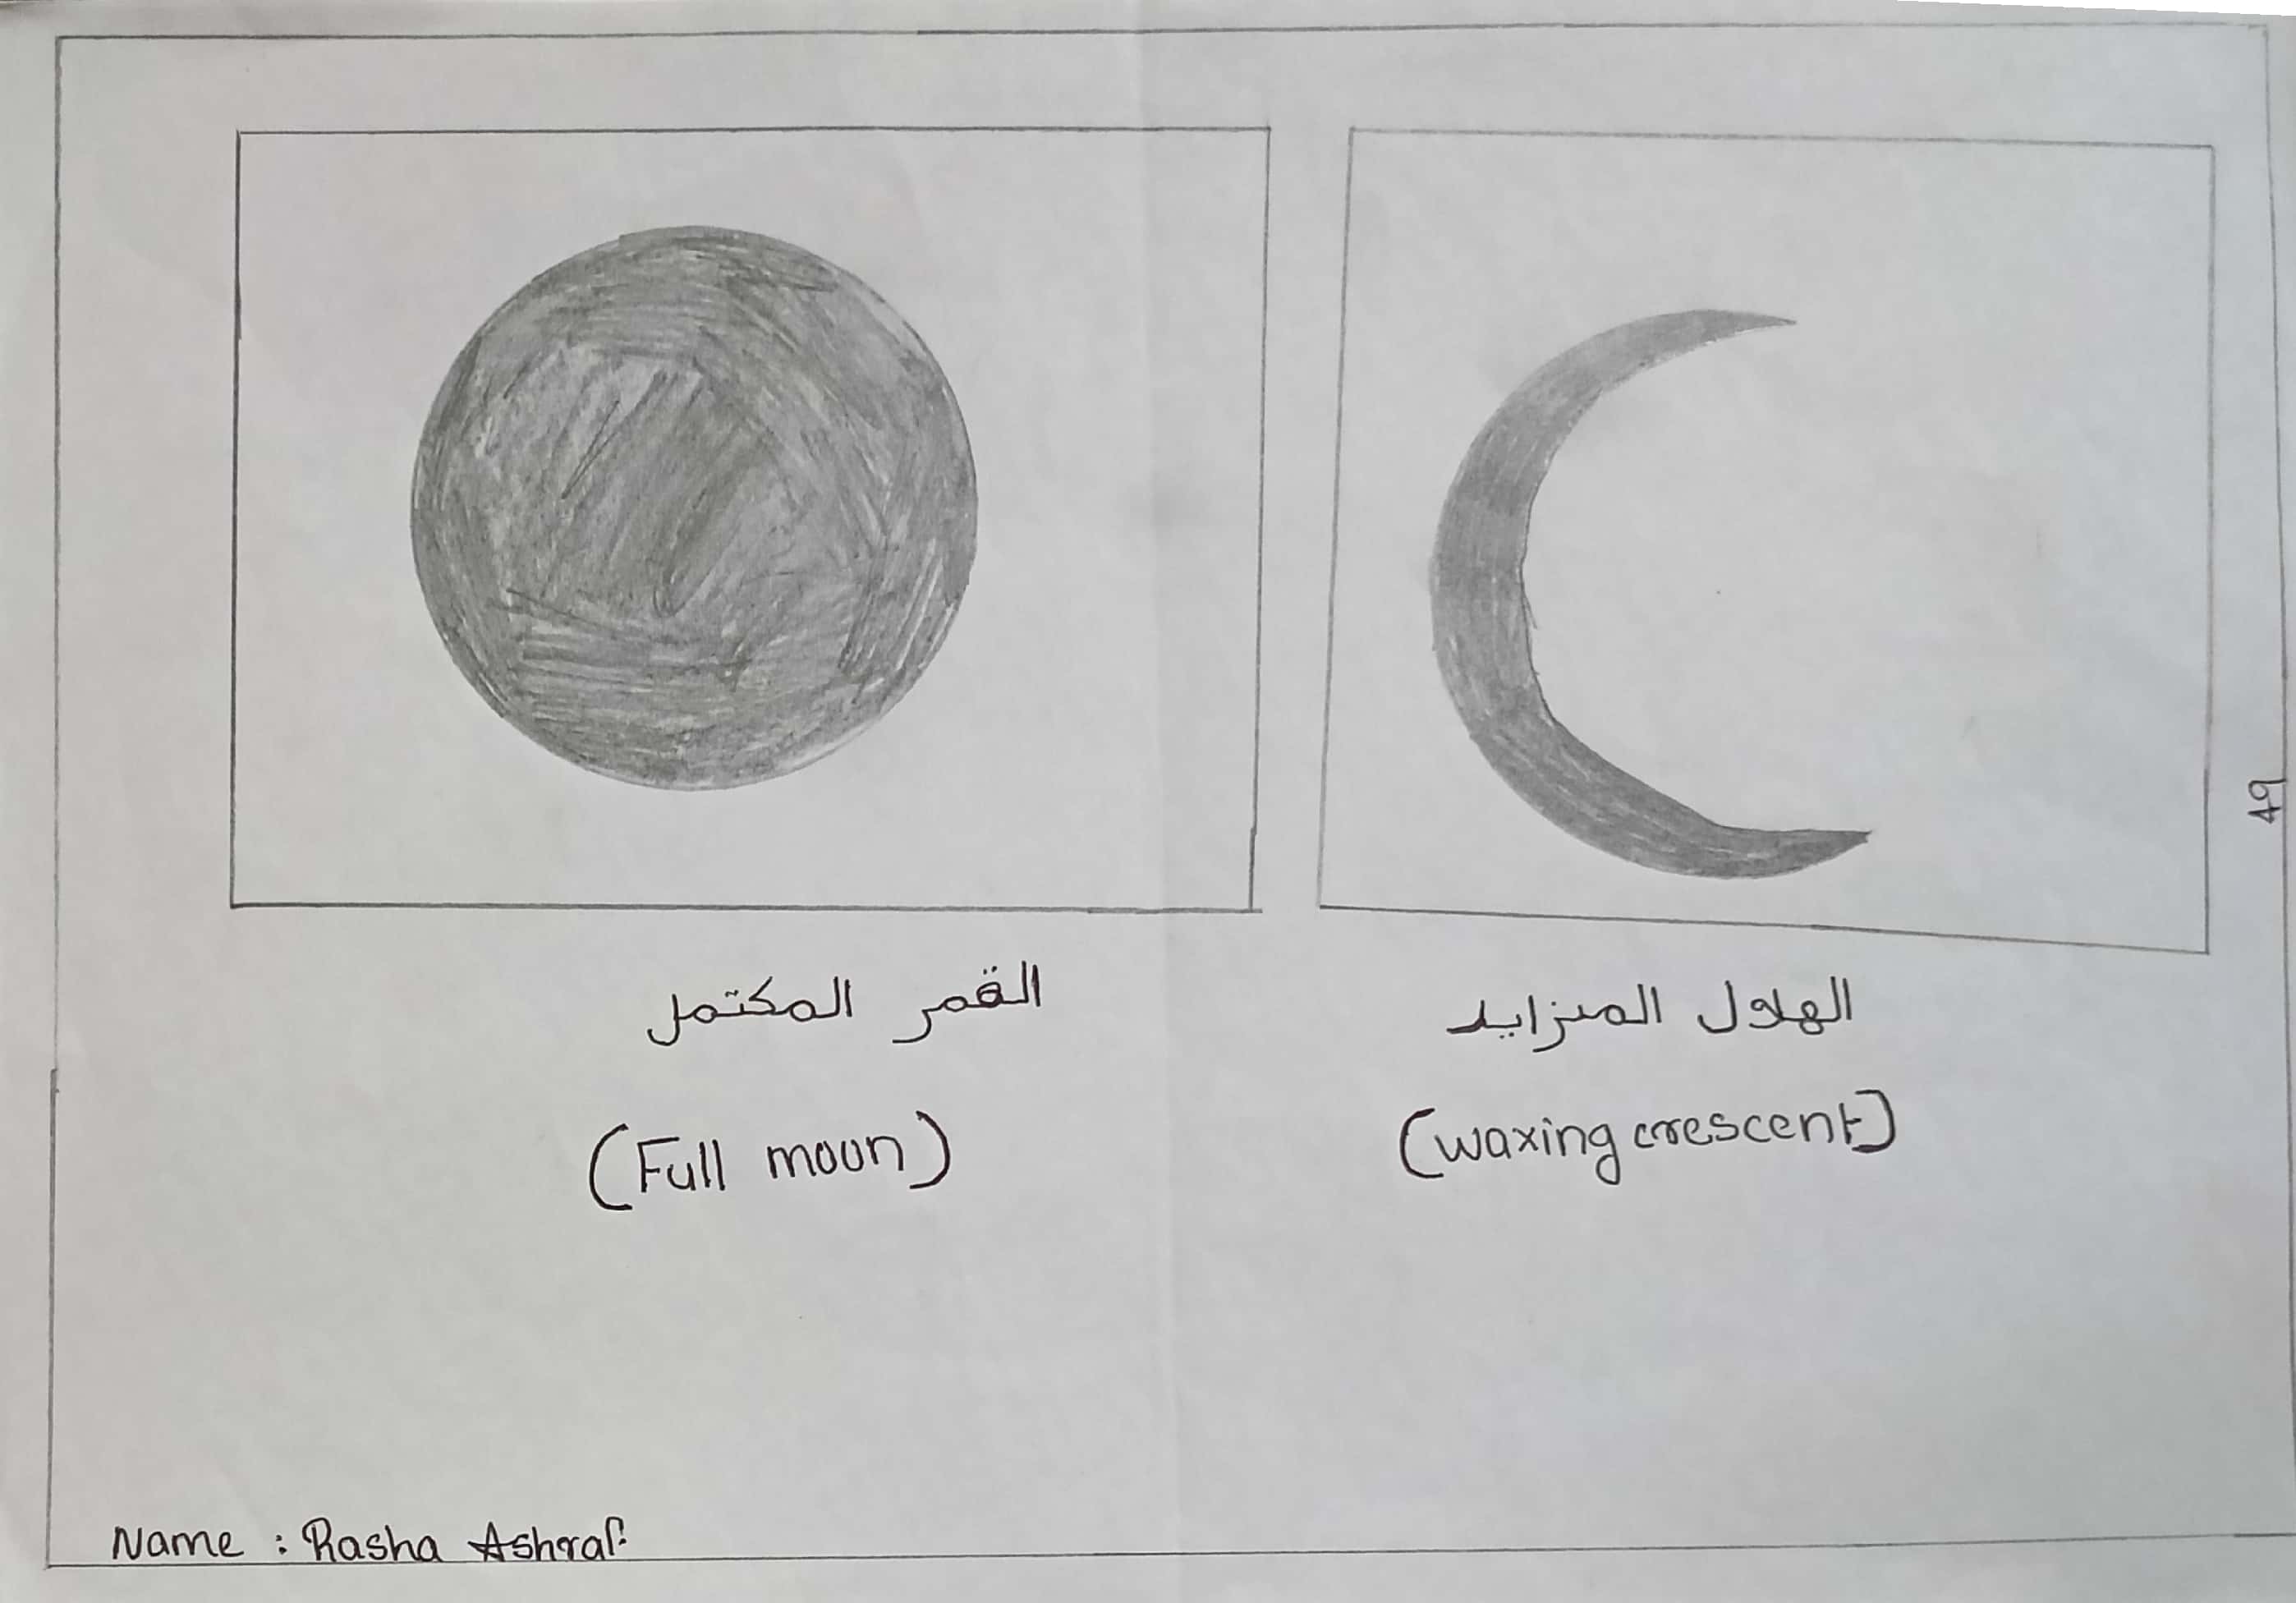 القمر المكتمل
(Full moon)
الهلال المتزايد
(waxing crescent)
49
Name : Rasha Ashraf